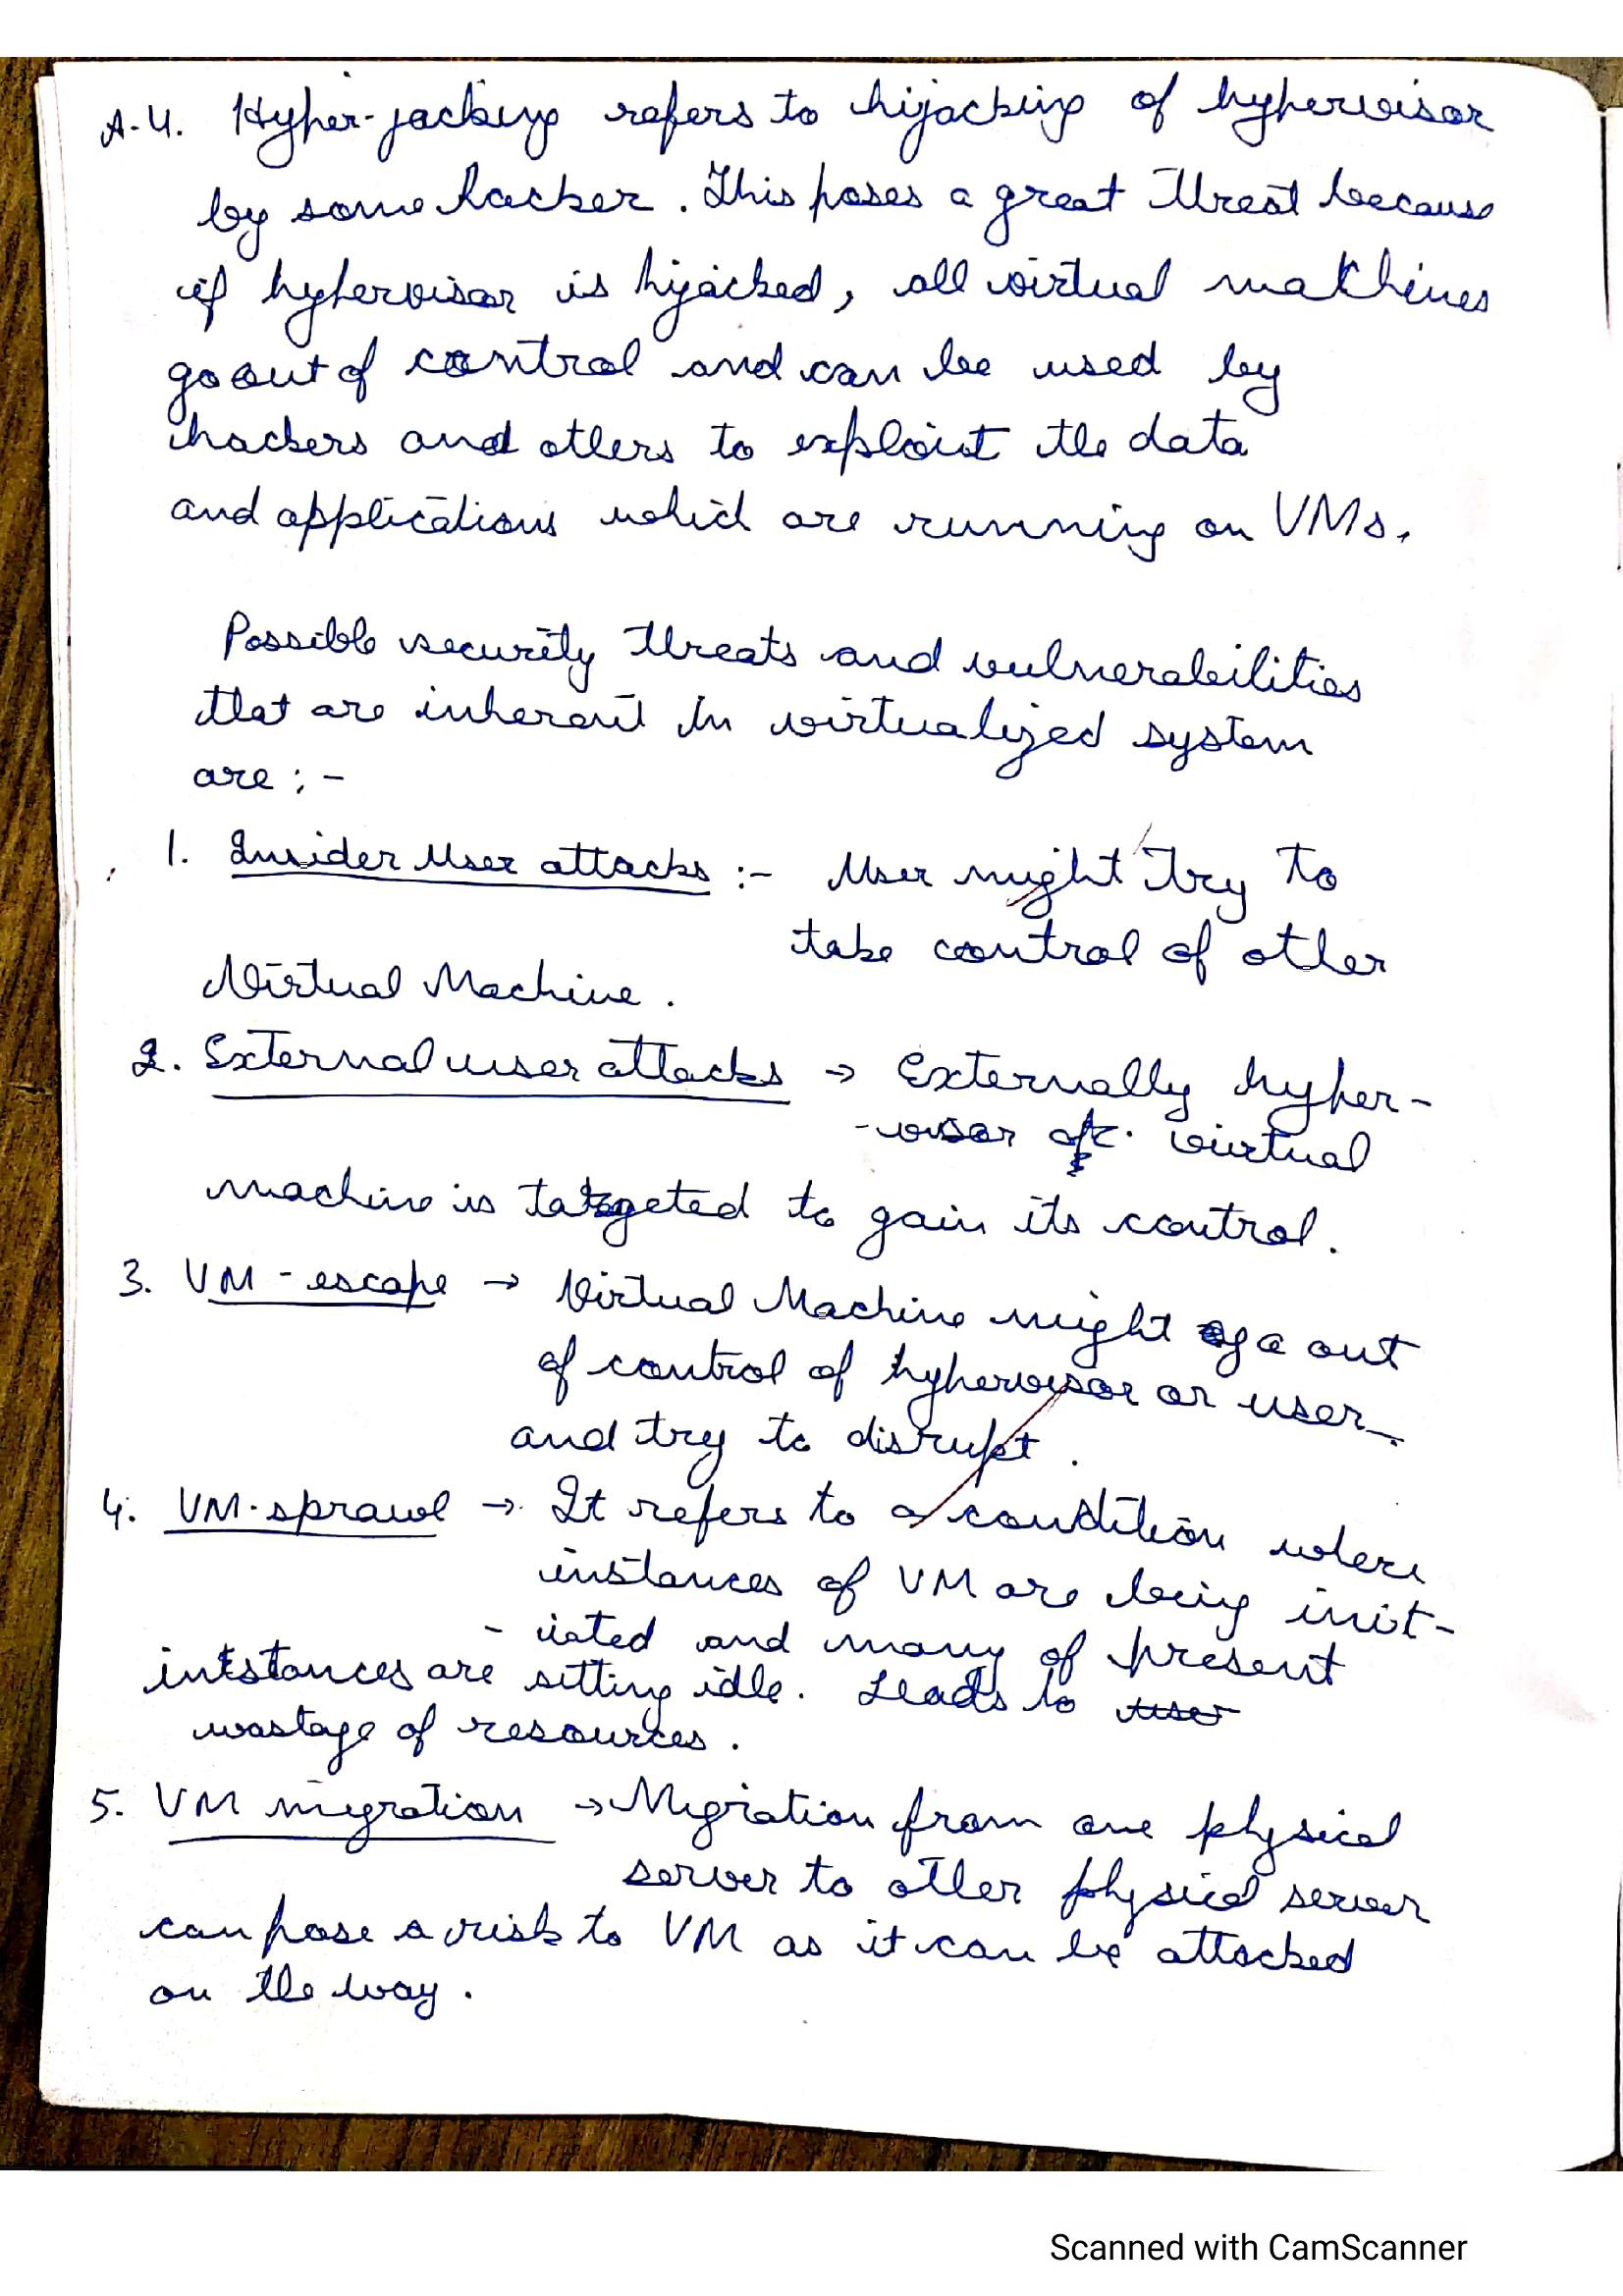 A-4. Hyper-jacking refers to hijacking of hypervisor
by some hacker. This poses a great threat because
if hypervisor is hijacked, all virtual machines
go out of control and can be used by
hackers and others to exploit the data
and applications which are running on VMs.
Possible security threats and vulnerabilities
that are inherent in virtualized system
are :-
1. Insider User attacks :- User might try to
take control of other
Virtual Machine.
2. External user attacks → Externally hyper-
-visor or virtual
machine is targeted to gain its control.
3. VM-escape → Virtual Machine might go out
of control of hypervisor or user
and try to disrupt.
4. VM-sprawl → It refers to a condition where
instances of VM are being init-
-iated and many of present
intstances are sitting idle. Leads to
wastage of resources.
5. VM migration → Migration from one physical
server to other physical server
can pose a risk to VM as it can be attacked
on the way.
Scanned with CamScanner